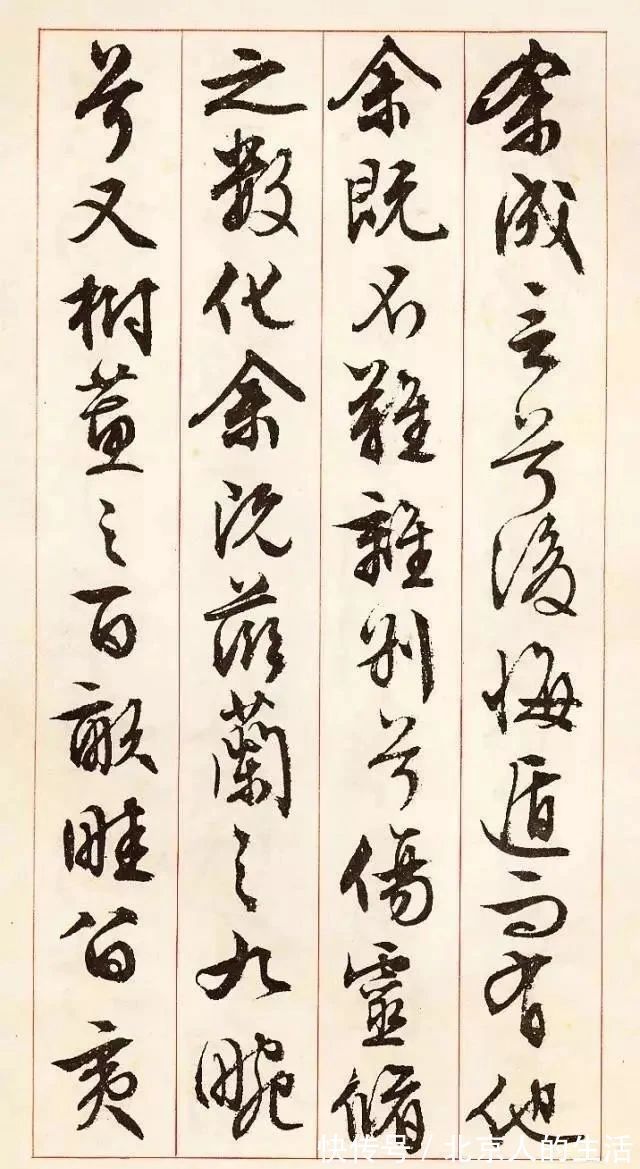 余成言兮後悔遁而有他
余既不難離別兮傷靈脩
之數化余既滋蘭之九畹
兮又樹蕙之百畝畦留夷
快传号 / 北京人的生活